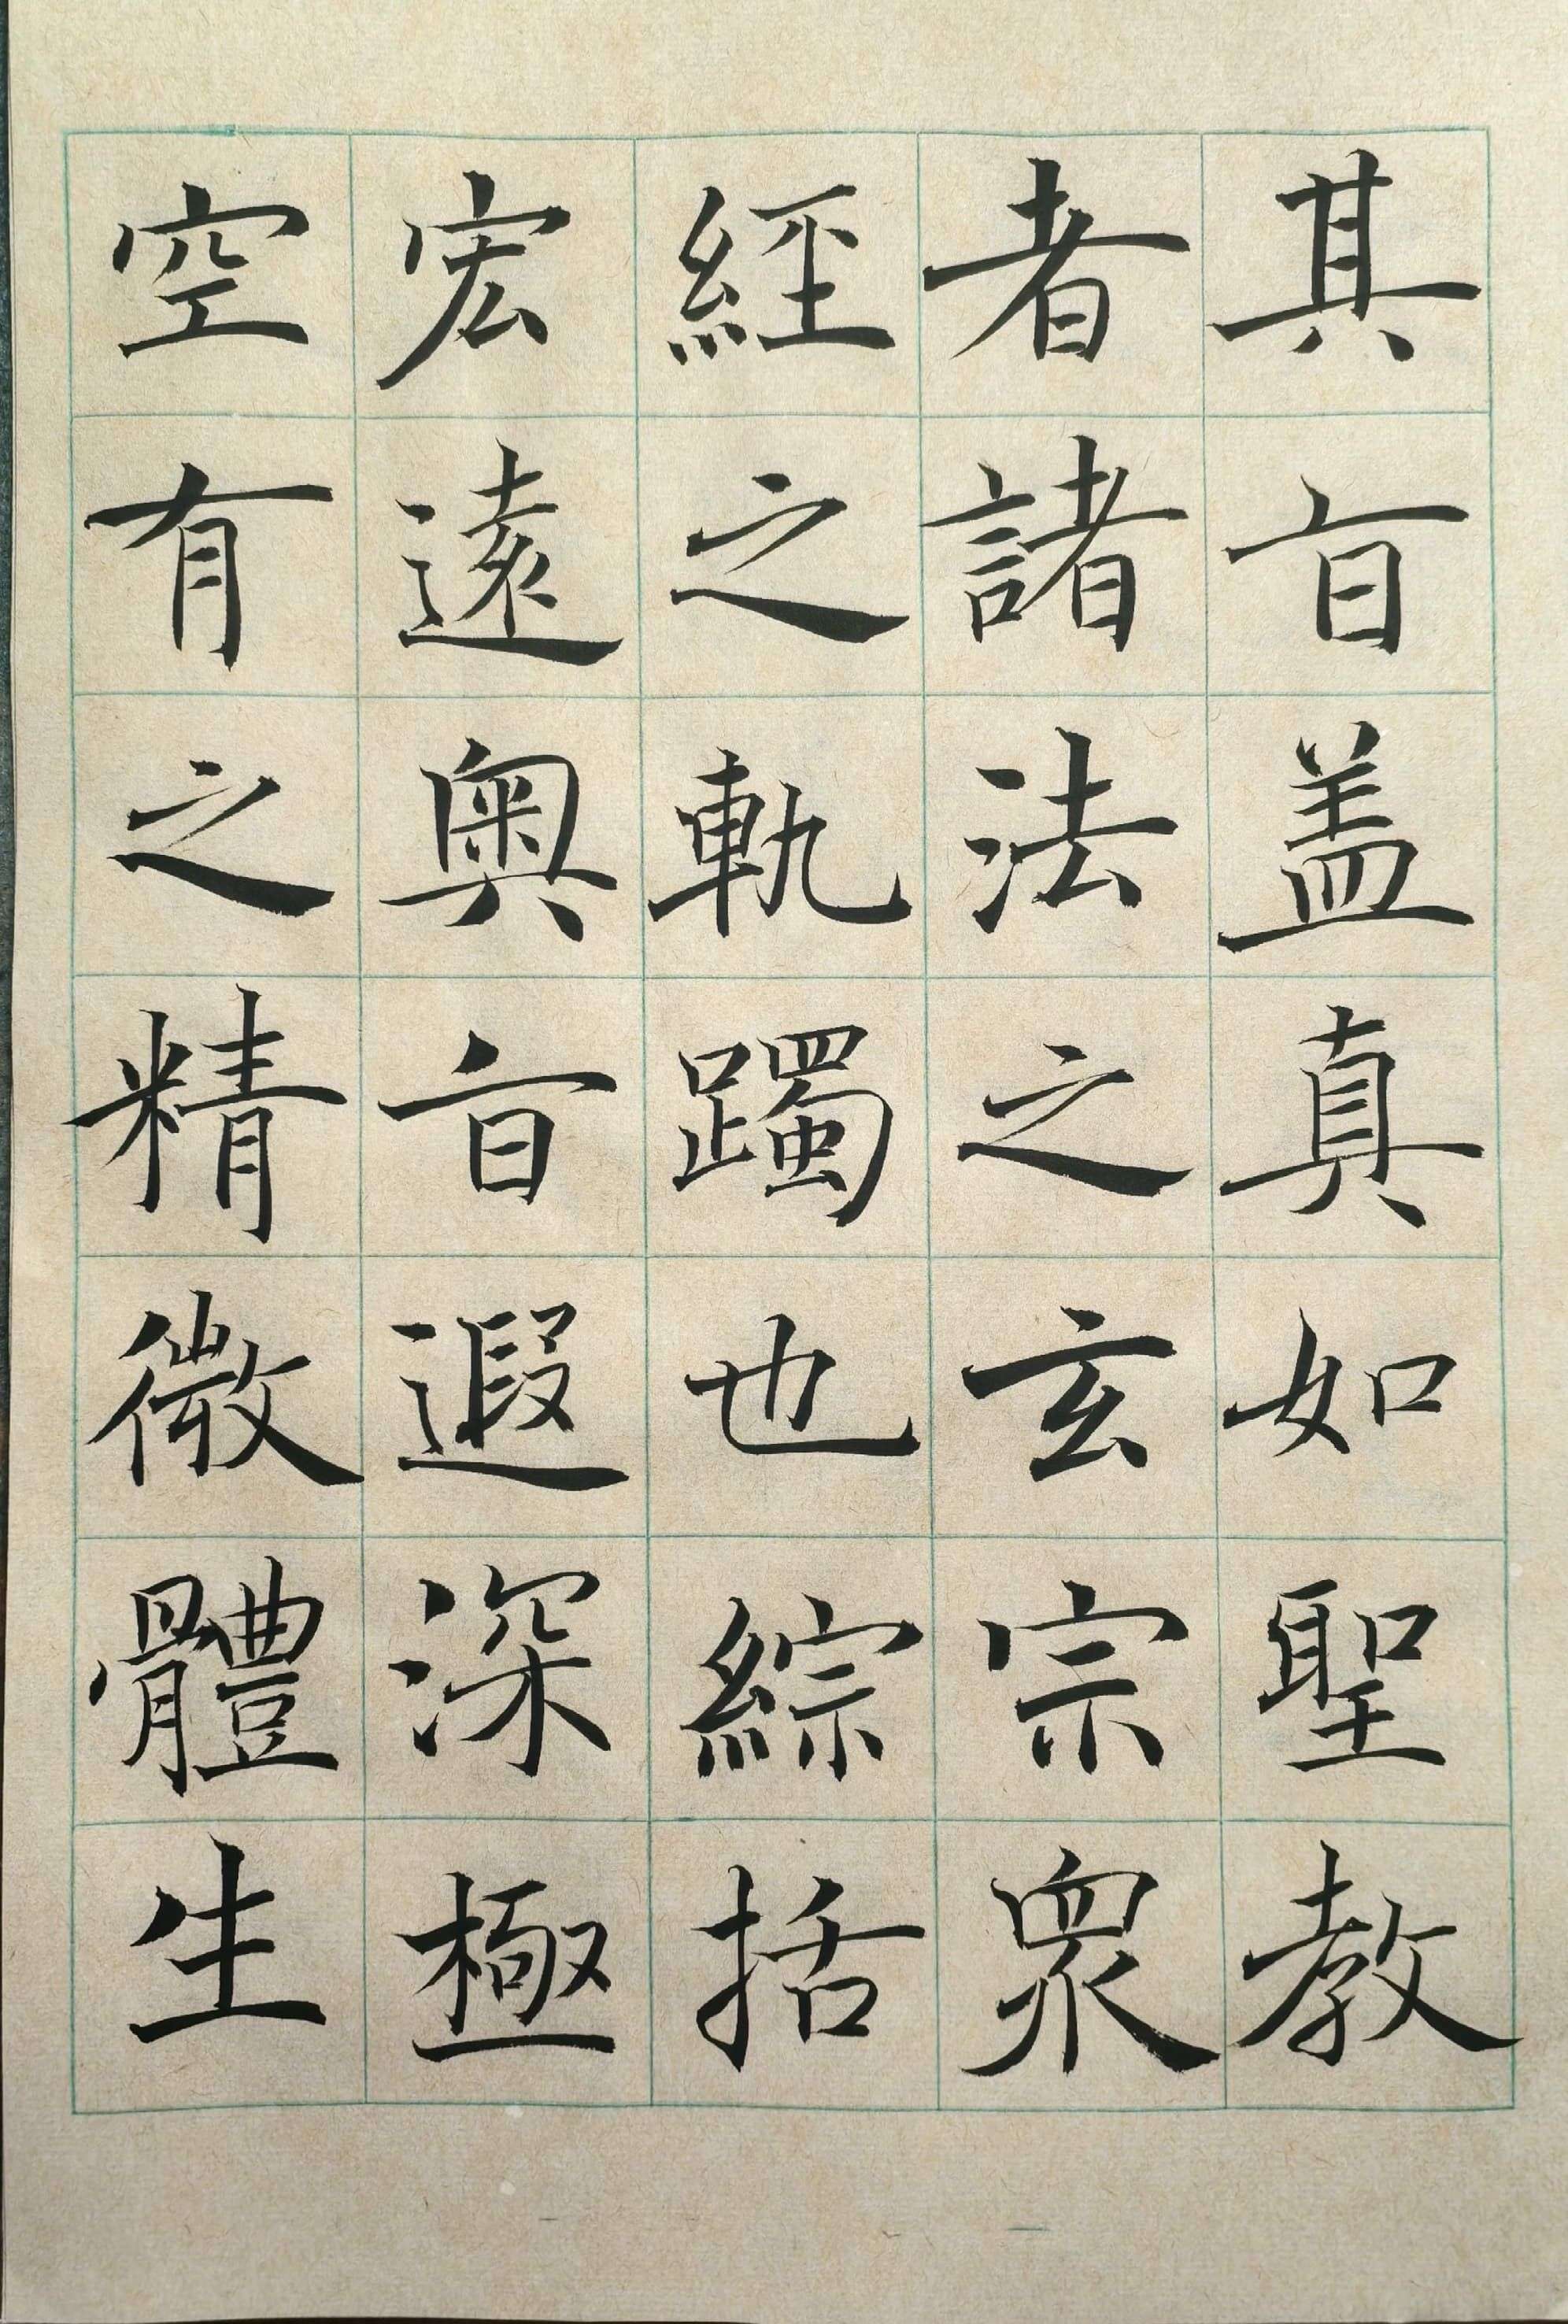 其旨盖真如聖教
者諸法之玄宗衆
經之軌躅也綜括
宏遠奧旨遐深極
空有之精微體生